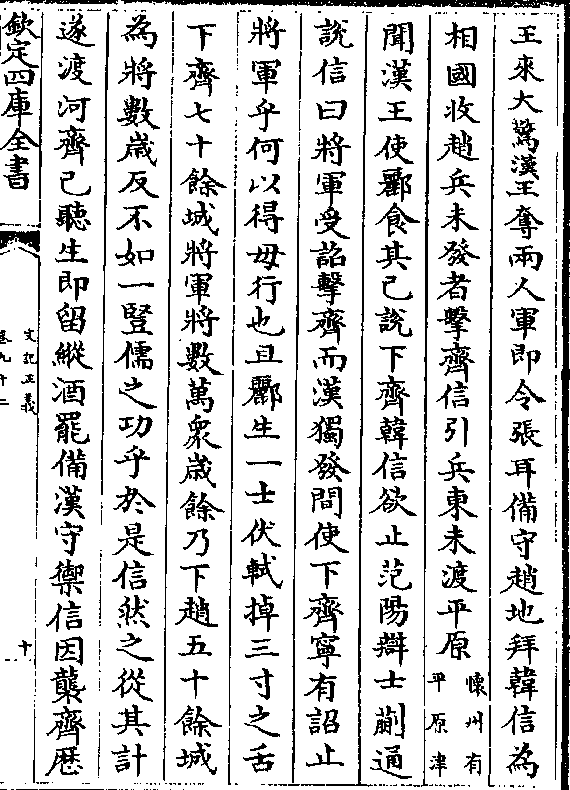 王來大驚漢王奪兩人軍即令張耳備守趙地拜韓信為
相國收趙兵未發者擊齊信引兵東未渡平原懷州有平原津
聞漢王使酈食其已說下齊韓信欲止范陽辯士蒯通
說信曰將軍受詔擊齊而漢獨發間使下齊寧有詔止
將軍乎何以得毋行也且酈生一士伏軾掉三寸之舌
下齊七十餘城將軍將數萬衆歲餘乃下趙五十餘城
為將數歲反不如一豎儒之功乎於是信然之從其計
遂渡河齊已聽生即留縱酒罷備漢守禦信因襲齊歷
欽定四庫全書
史記正義
卷九十二
十